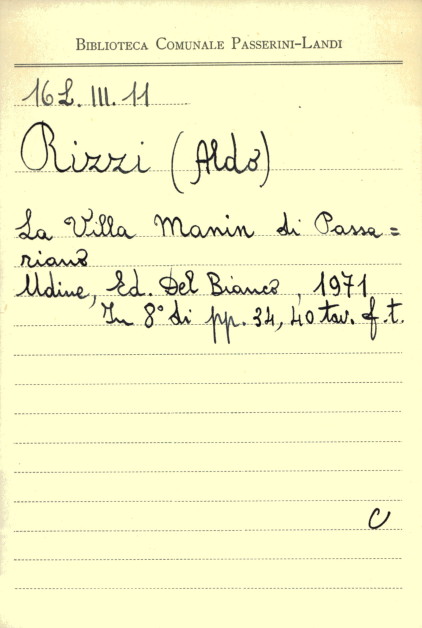 BIBLIOTECA COMUNALE PASSERINI-LANDI
16 L. III. 11
Rizzi (Aldo)
La Villa Manin di Passa=
riano
Udine, Ed. Del Bianco, 1971
In 8° di pp. 34, 40 tav. f. t.
C